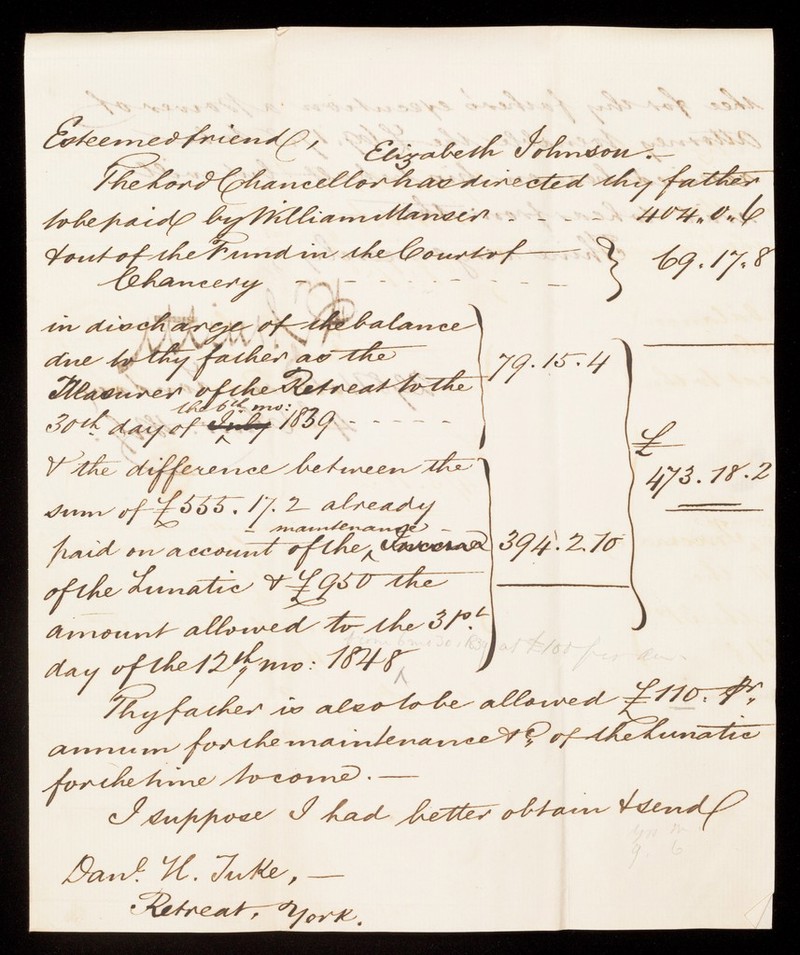 Esteemed friend,
Elizabeth Johnson.—
The Lord Chancellor has directed thy father
to be paid by William Manser - - 404,,0,,6
& out of the Fund in the Court of } 69.17.8
Chancery - - - - - - - -
in discharge of the balance
due to thy father as the 79.15.4
Treasurer of the Retreat to the
the 6th. mo:
30th day of July 1839 - - - - -
£
& the difference between the 473.18.2
sum of £555.17.2 already
maintenance
paid on account of the 394.2.10
of the Lunatic & £950 the
amount allowed to the 31st.
from 6 mo 30. 1839 at £100 per an.
day of the 12th, mo: 1848
Thy father is also to be allowed £110. pr,
annum for the maintenance &c, of the Lunatic
for the time to come.—
I suppose I had better obtain & send
Danl. H. Tuke,—
9. 6
Retreat, York.